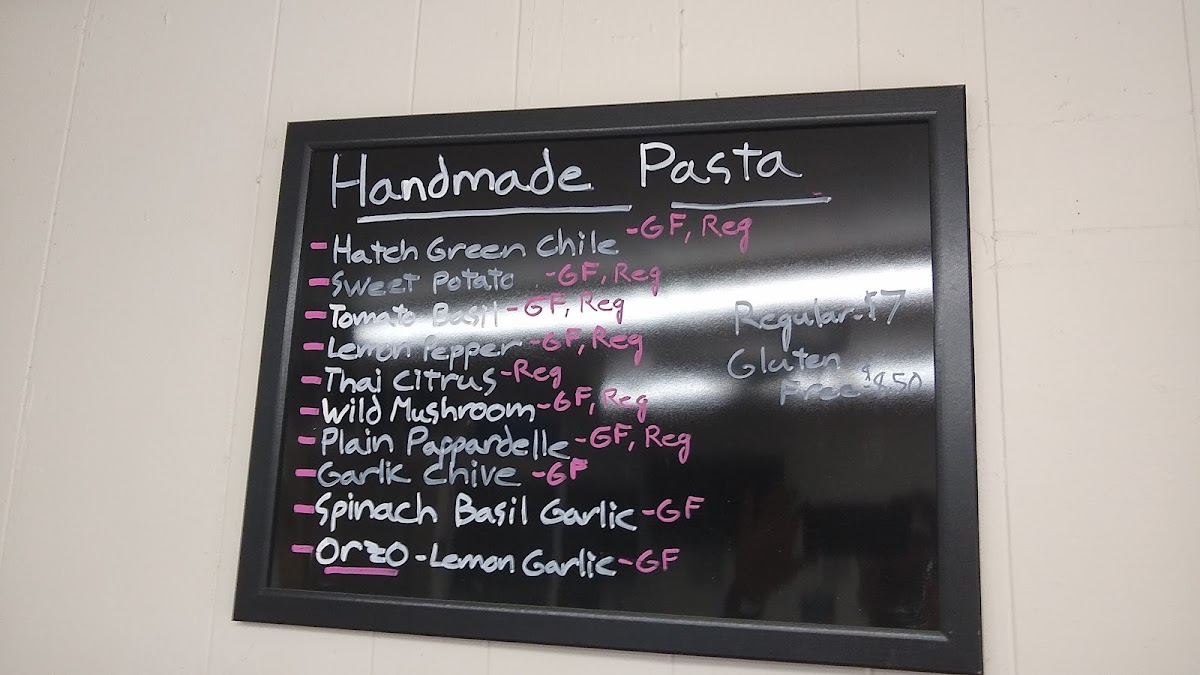 Handmade Pasta
- Hatch Green Chile - GF, Reg
- Sweet Potato - GF, Reg
- Tomato Basil - GF, Reg
- Lemon Pepper - GF, Reg
- Thai Citrus - Reg
- Wild Mushroom - GF, Reg
- Plain Pappardelle - GF, Reg
- Garlic Chive - GF
- Spinach Basil Garlic - GF
- Orzo - Lemon Garlic - GF
Regular - $7
Gluten
Free - $8.50